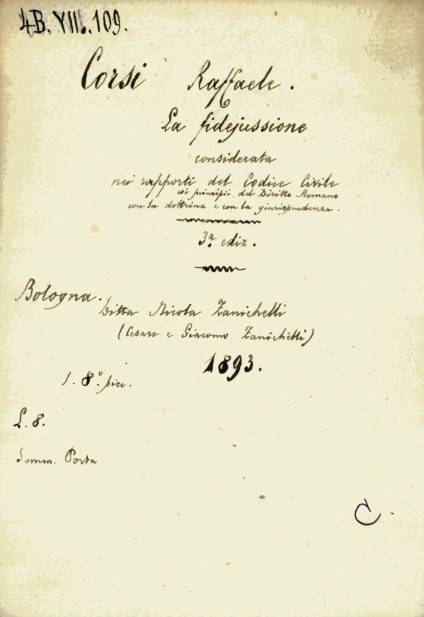 4B. VII. 109.
Corsi Raffaele.
La fidejussione
considerata
nei rapporti del Codice Civile
coi principii del Diritto Romano
con la dottrina e con la giurisprudenza.
3ª ediz.
Bologna.
Ditta Nicola Zanichelli
(Cesare e Giacomo Zanichelli)
1893.
1. 8° picc.
L. 8.
Somm. Porta
C